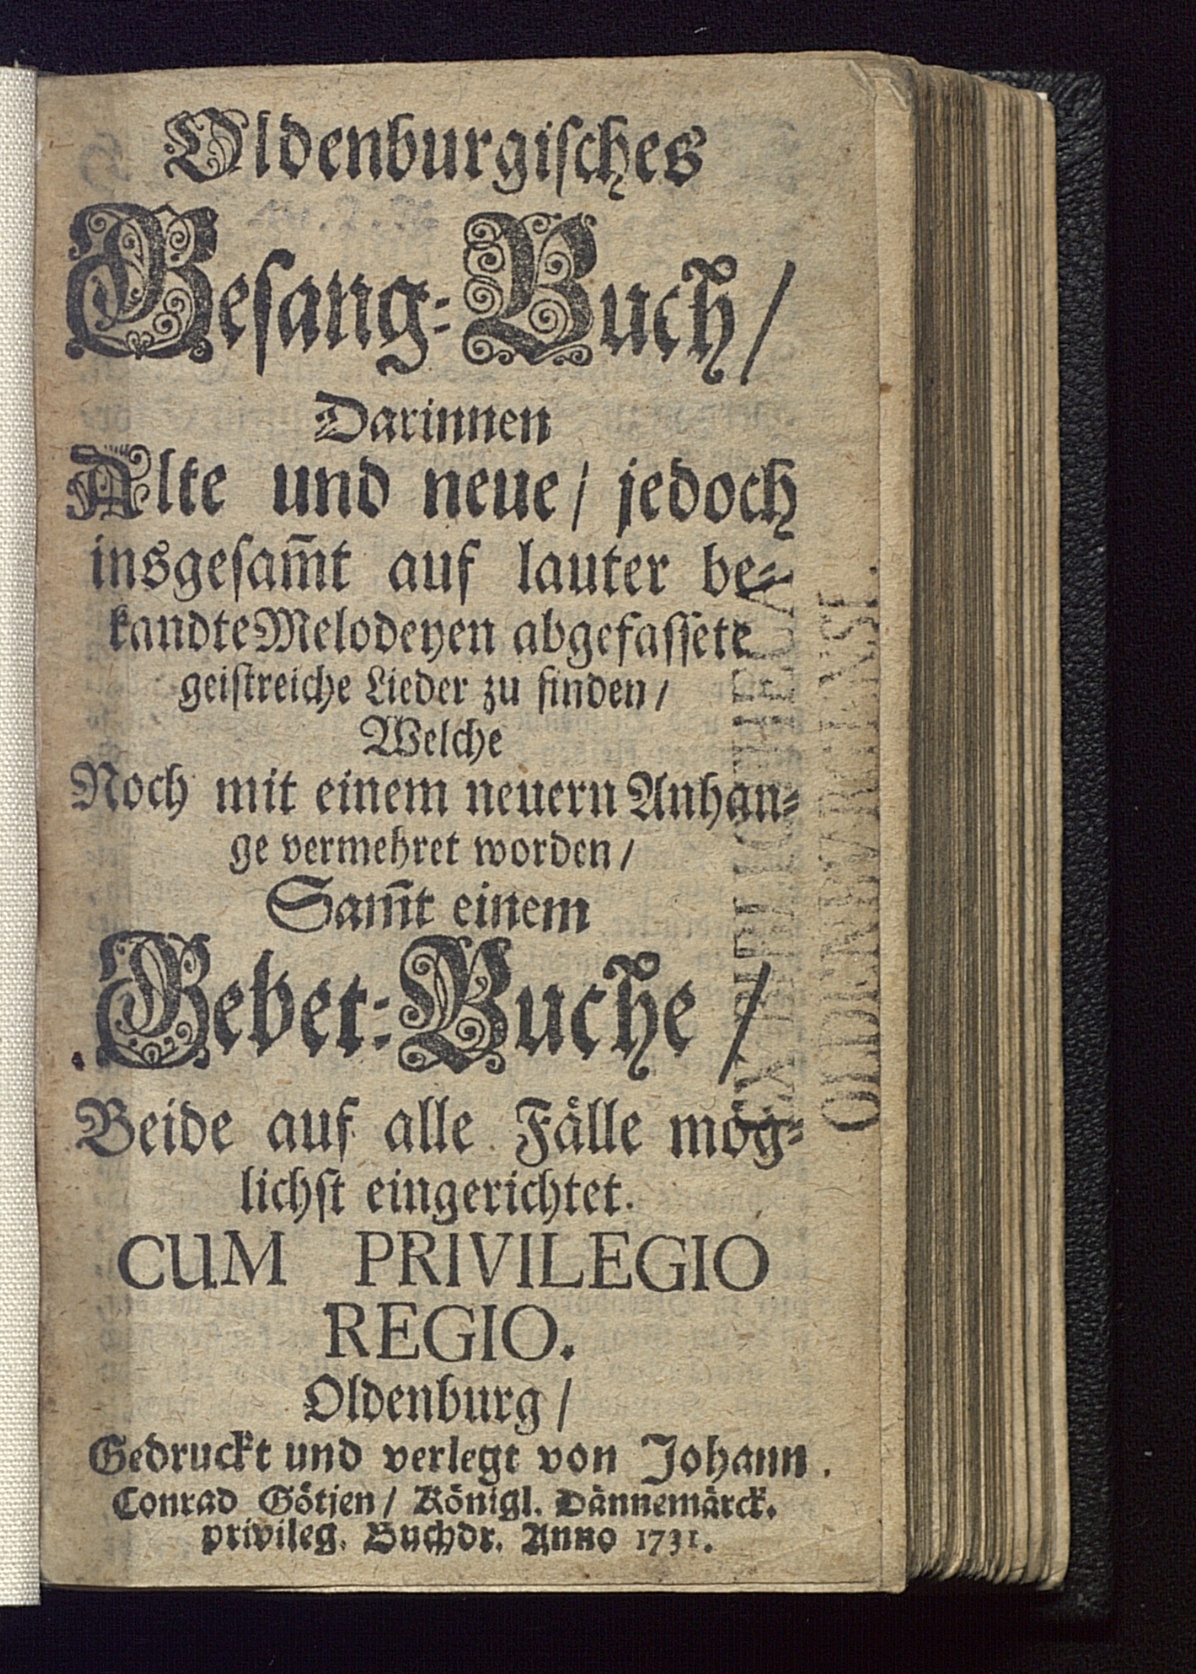 Oldenburgisches
Gesang-Buch /
Darinnen
Alte und neue / jedoch
insgesam̃t auf lauter be-
kandte Melodeyen abgefassete
geistreiche Lieder zu finden /
Welche
Noch mit einem neuern Anhan-
ge vermehret worden /
Sam̃t einem
Gebet-Buche /
Beide auf alle Fälle mög-
lichst eingerichtet.
CUM PRIVILEGIO
REGIO.
Oldenburg /
Gedruckt und verlegt von Johann
Conrad Götjen / Königl. Dännemärck.
privileg. Buchdr. Anno 1731.
EX BIBLIOTHECA
OLDENBURGENSI.